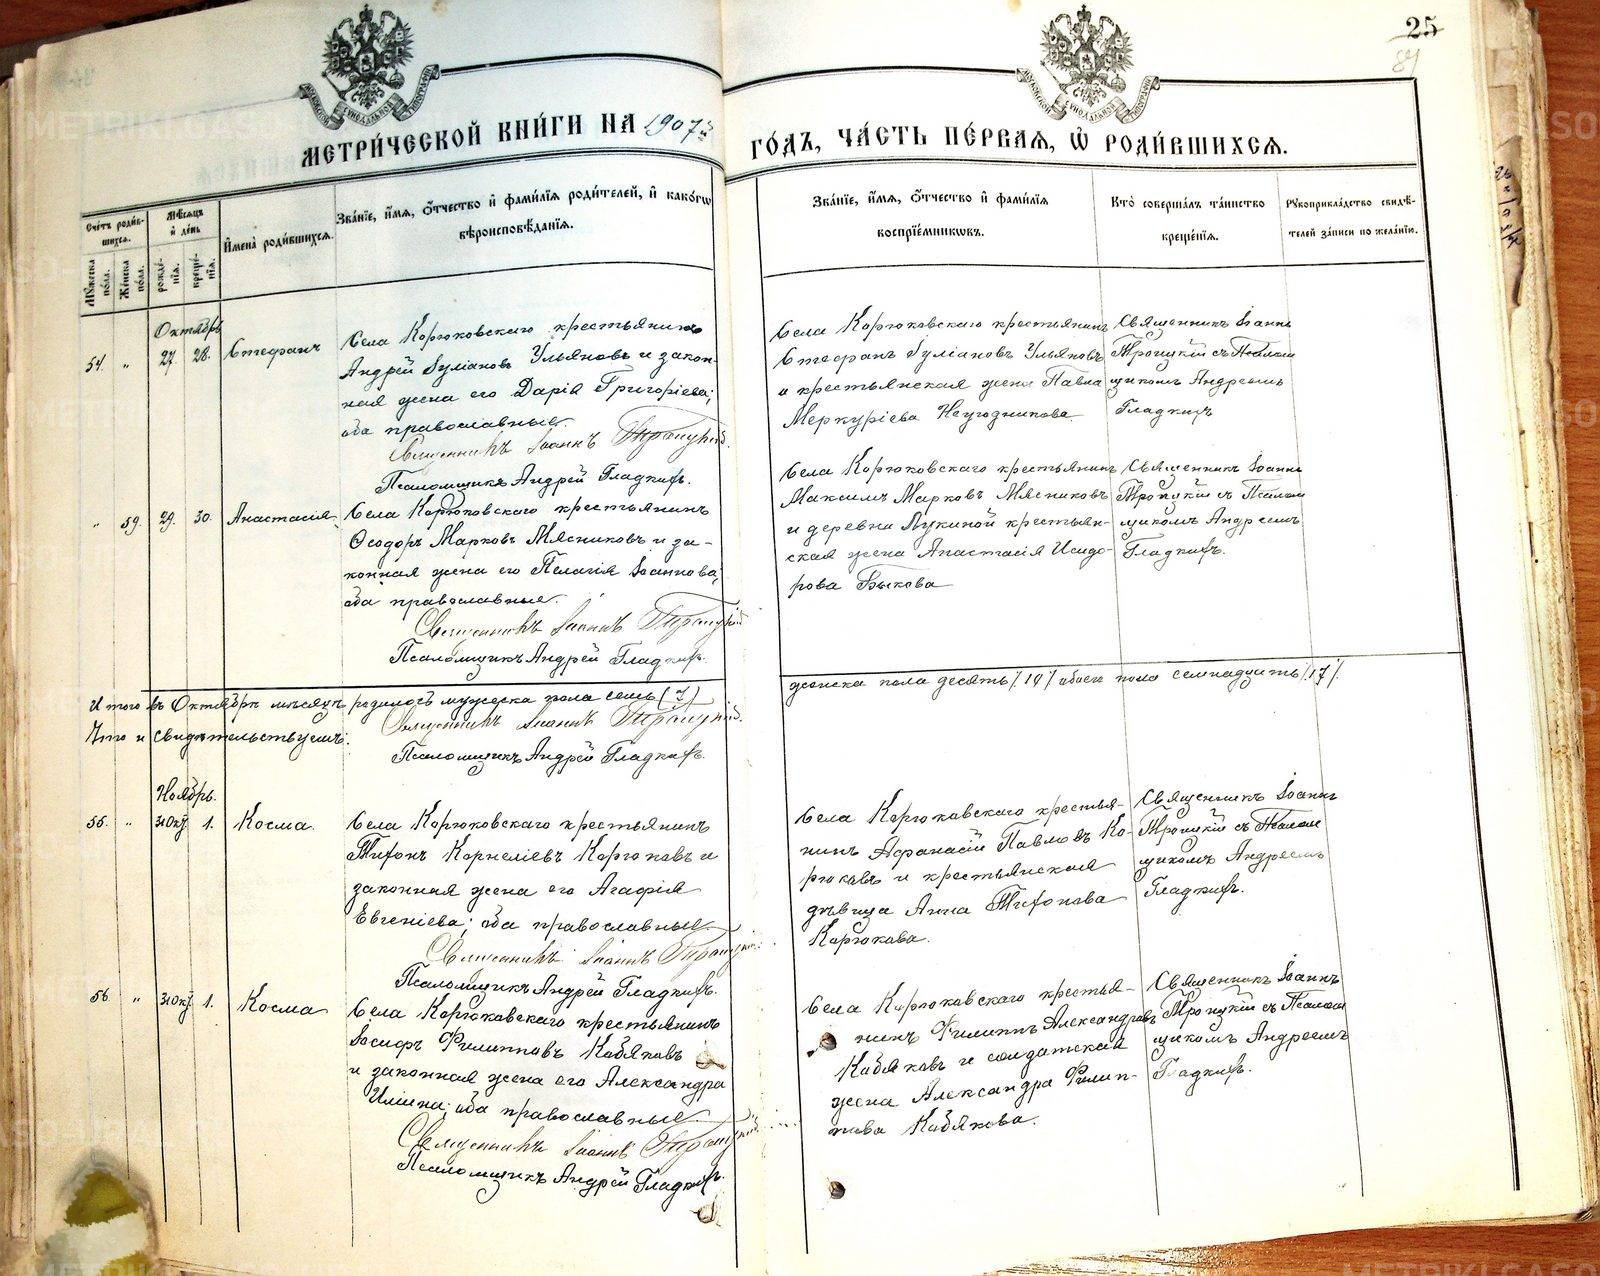 25
84
МЕТРИ́ЧЕСКОЙ КНИ́ГИ НА 1907 й
ГО́ДЪ, ЧА́СТЬ ПЕ́РВАЯ, Ѡ РОДИ́ВШИХСЯ.
Сче́тъ роди́вшихся.
Му́жеска по́ла.
Же́нска по́ла.
Мѣ́сяцъ и де́нь
рожде́нїя.
креще́нїя.
И҆мена̀ роди́вшихся.
Зва́нїе, и҆́мя, ѻ҆́тчество и҆ фами́лїя роди́телей, и҆ како́гѡ
вѣроисповѣ́данїя.
Зва́нїе, и҆́мя, ѻ҆́тчество и҆ фами́лїя
воспрїе́мниковъ.
Кто̀ соверша́лъ та́инство
креще́нїя.
Рукоприкла́дство свидѣ́-
телей за́писи по жела́нїю.
Октябрь
54. " 27. 28. Стефанъ
Села Корюковскаго крестьянинъ
Андрей Іуліановъ Ульяновъ и закон-
ная жена его Дарія Григоріева;
оба православные.
Священникъ Іоаннъ Троицкій.
Псаломщикъ Андрей Гладкихъ.
Села Корюковскаго крестьянинъ
Стефанъ Іуліановъ Ульяновъ
и крестьянская жена Павла
Меркуріева Неугодникова
Священникъ Іоаннъ
Троицкій съ Псалом
щикомъ Андреемъ
Гладкихъ
" 59. 29. 30. Анастасія.
Села Корюковскаго крестьянинъ
Ѳеодоръ Марковъ Мясниковъ и за-
конная жена его Пелагія Іоаннова;
оба православные.
Священникъ Іоаннъ Троицкій
Псаломщикъ Андрей Гладкихъ.
Села Корюковскаго крестьянинъ
Максимъ Марковъ Мясниковъ
и деревни Лукиной крестьян-
ская жена Анастасія Исидо-
рова Быкова
Священникъ Іоаннъ
Троицкій съ Псалом
щикомъ Андреемъ
Гладкихъ.
Итого въ Октябрѣ мѣсяцѣ родилось мужеска пола семь (7)
женска пола десять /10/ обоего пола семнадцать /17/.
Что и свидѣтельствуемъ:
Священникъ Іоаннъ Троицкій.
Псаломщикъ Андрей Гладкихъ.
Ноябрь.
55. " 31 окт. 1. Косма.
Села Корюковскаго крестьянинъ
Тихонъ Корниліевъ Корюковъ и
законная жена его Агафія
Евгеніева; оба православные.
Священникъ Іоаннъ Троицкій.
Псаломщикъ Андрей Гладкихъ.
Села Корюковскаго крестья-
нинъ Аѳанасій Павловъ Ко-
рюковъ и крестьянская
дѣвица Анна Тихонова
Корюкова.
Священникъ Іоаннъ
Троицкій съ Псалом
щикомъ Андреемъ
Гладкихъ.
56. " 31 окт. 1. Косма
Села Корюковскаго крестьянинъ
Іосифъ Филипповъ Кабяковъ
и законная жена его Александра
Иліина; оба православные.
Священникъ Іоаннъ Троицкій.
Псаломщикъ Андрей Гладкихъ.
Села Корюковскаго крестья-
нинъ Филиппъ Александровъ
Кабяковъ и солдатская
жена Александра Филип-
пова Кабякова.
Священникъ Іоаннъ
Троицкій съ Псалом
щикомъ Андреемъ
Гладкихъ.